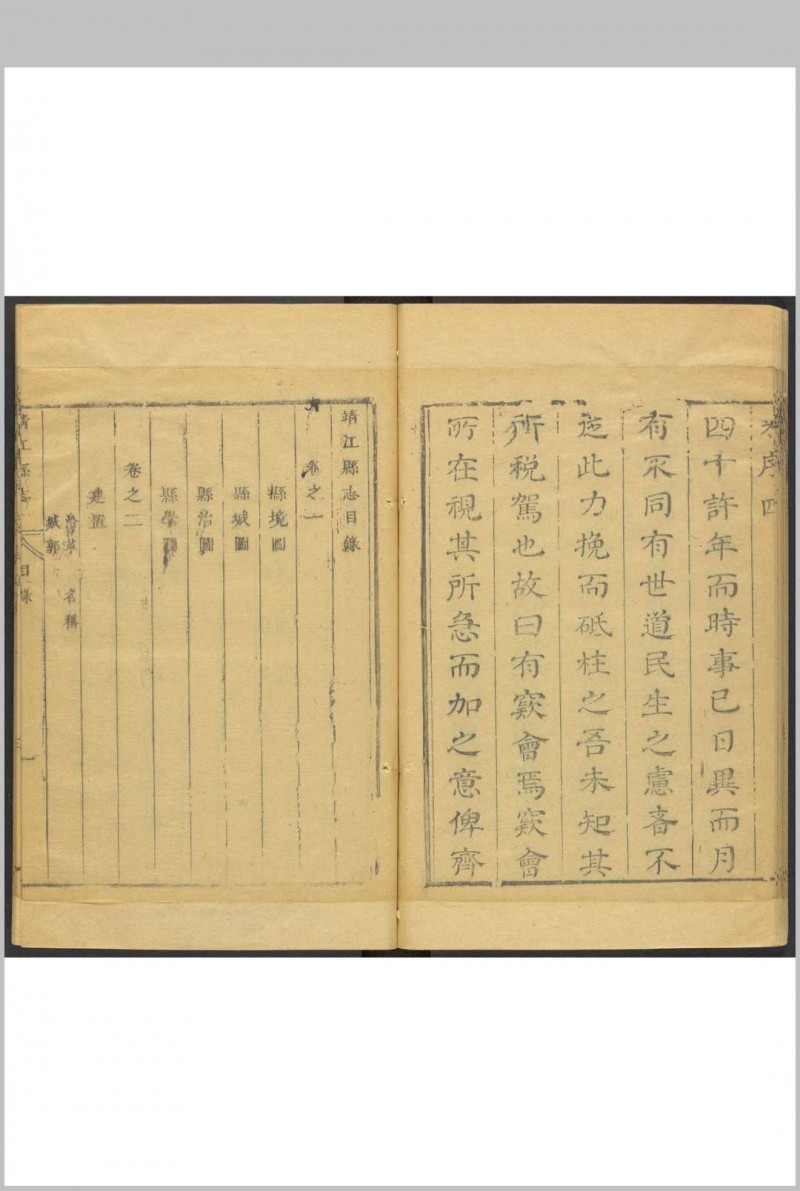 序四
四十許年而時事已日異而月
有不同有世道民生之慮者不
迄此力挽而砥柱之吾未知其
所稅駕也故曰有窾會焉窾會
所在視其所急而加之意俾齊
靖江縣志目錄
卷之一
縣境圖
縣城圖
縣治圖
縣學圖
卷之二
建置
沿革 名稱
城郭
靖江縣志 目錄 一